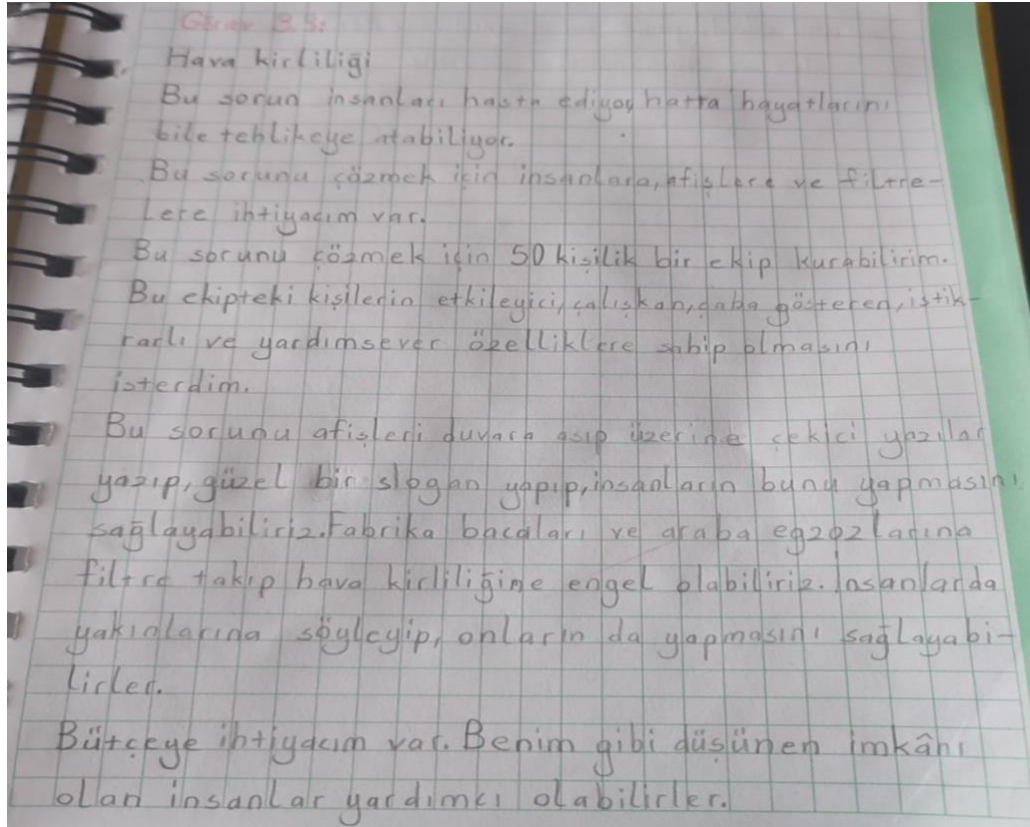 Görev 3.3:
Hava kirliliği
Bu sorun insanları hasta ediyor hatta hayatlarını
bile tehlikeye atabiliyor.
Bu sorunu çözmek için insanlara, afişlere ve filtre-
lere ihtiyacım var.
Bu sorunu çözmek için 50 kişilik bir ekip kurabilirim.
Bu ekipteki kişilerin etkileyici, çalışkan, çaba gösteren, istik-
rarlı ve yardımsever özelliklere sahip olmasını
isterdim.
Bu sorunu afişleri duvara asıp üzerine çekici yazılar
yazıp, güzel bir slogan yapıp, insanların bunu yapmasını
sağlayabiliriz. Fabrika bacaları ve araba egzozlarına
filtre takıp hava kirliliğine engel olabiliriz. İnsanlarda
yakınlarına söyleyip, onların da yapmasını sağlayabi-
lirler.
Bütçeye ihtiyacım var. Benim gibi düşünen imkânı
olan insanlar yardımcı olabilirler.